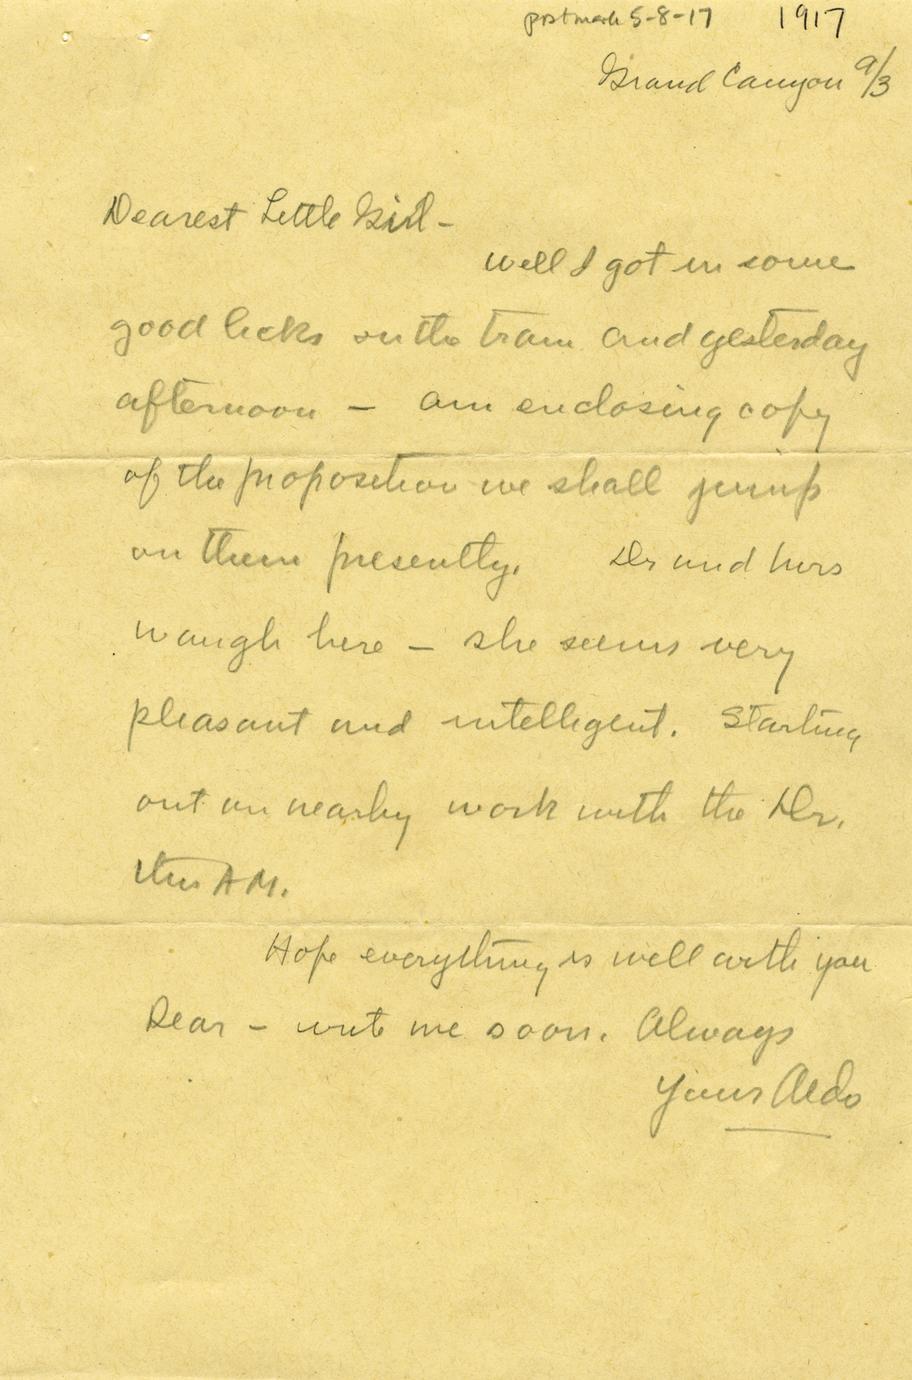 postmark 5-8-17 1917
Grand Canyon 9/3
Dearest Little Girl -
well I got in some
good licks on the train and yesterday
afternoon - am enclosing copy
of the proposition we shall jump
on them presently. Dr and Mrs
Waugh here - she seems very
pleasant and intelligent. Starting
out on nearby work with the Dr.
this AM.
Hope everything is well with you
Dear - write me soon. Always
Yours Aldo